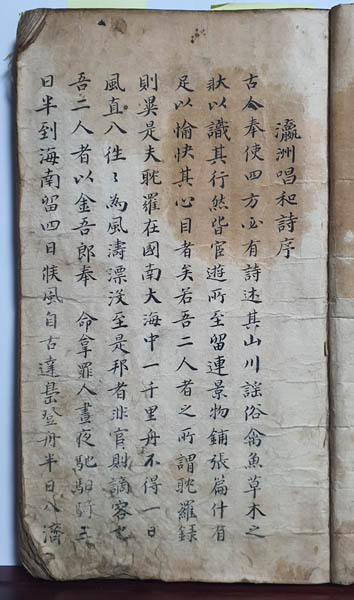 瀛洲唱和詩序
古今奉使四方至有詩述其山川謠俗禽魚草木之
狀以識其行然皆官遊所至留連景物鋪張篇什有
足以愉快其心目者矣若吾二人者之所謂耽羅錄
則異是夫耽羅在國南大海中一千里舟不得一日
風直八往〻為風濤漂沒至是邦者非官則謫客也
吾二人者以金吾郎奉 命拿罪人晝夜馳驅
日半到海南留四日候風自古達島登舟半日入濟